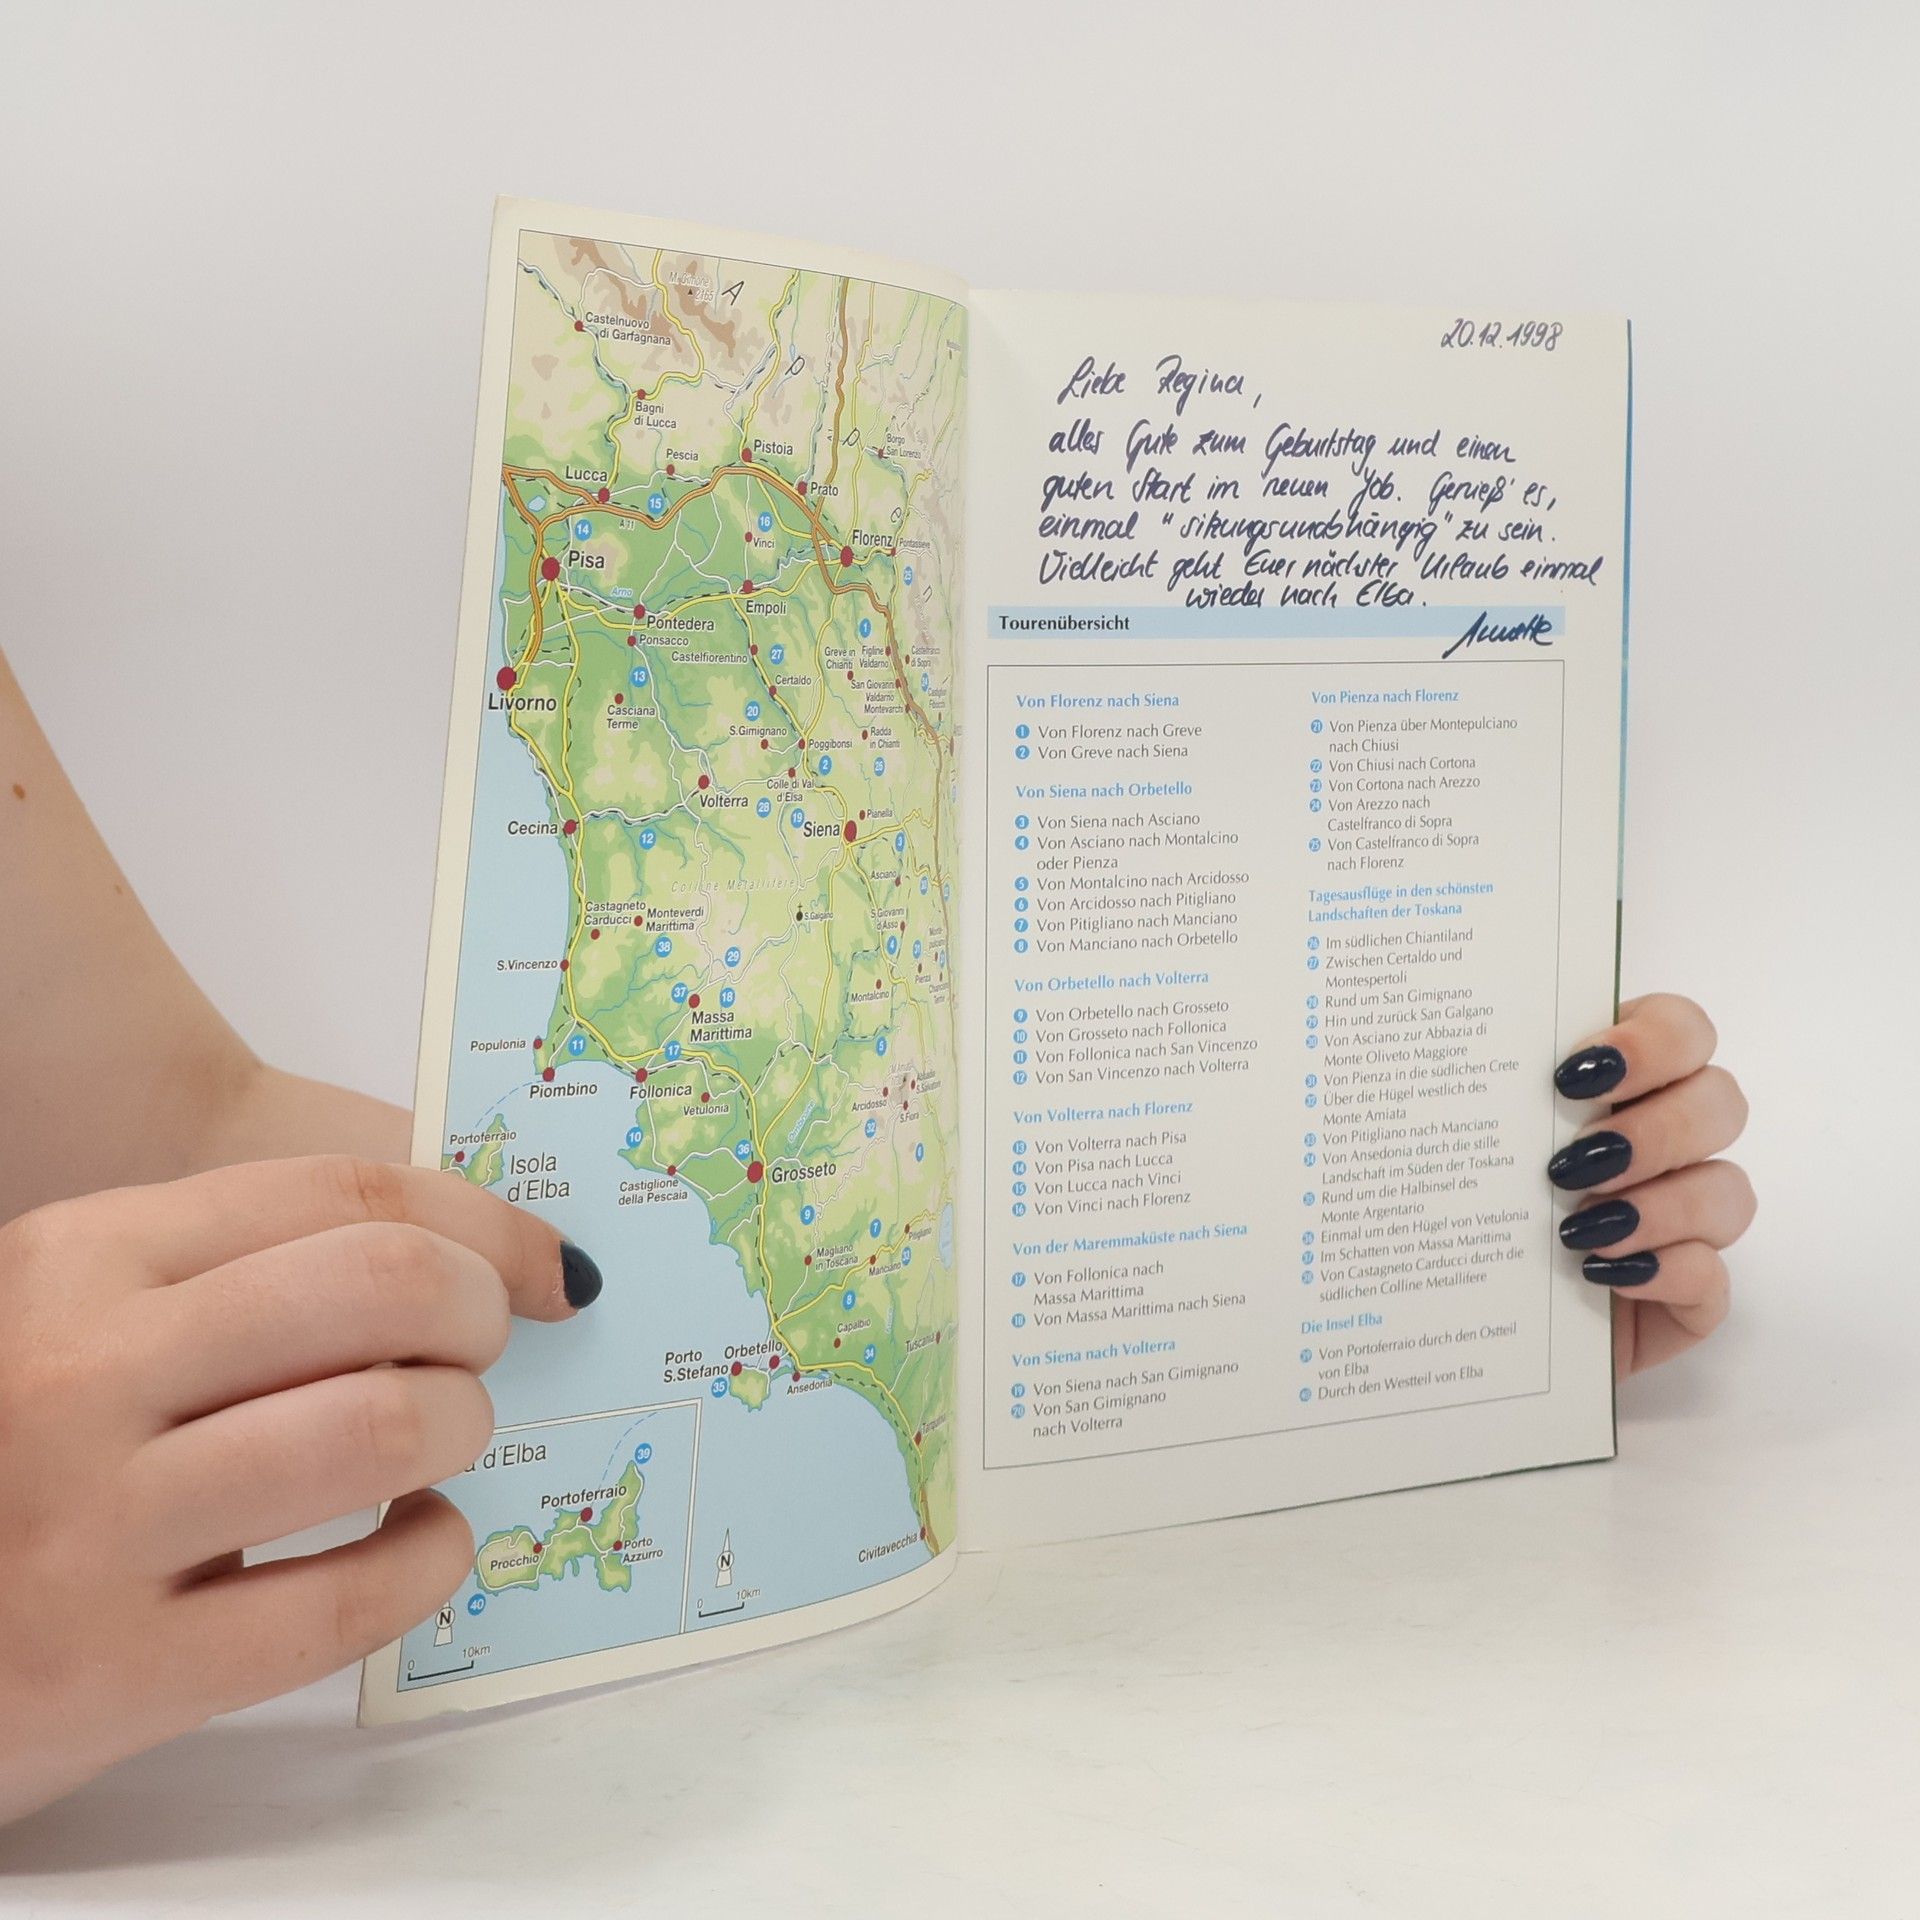 Castelnuovo
di Garfagnana
Bagni
di Lucca
Pescia
Pistoia
Lucca
Prato
Borgo
San Lorenzo
15
14
16
A 11
A1
Vinci
Florenz
Pontassieve
Pisa
Arno
Empoli
Pontedera
Ponsacco
Castelfiorentino
27
1
Greve in
Chianti
Figline
Valdarno
Castelfranco
di Sopra
13
Certaldo
San Giovanni
Valdarno
Montevarchi
Livorno
Casciana
Terme
20
S.Gimignano
Poggibonsi
Radda
in Chianti
2
26
Volterra
Colle di Val
d'Elsa
28
19
Siena
Pianella
Cecina
12
3
Colline Metallifere
Asciano
Castagneto
Carducci
Monteverdi
Marittima
S.Galgano
S.Giovanni
d'Asso
38
29
4
S.Vincenzo
37
18
Pienza
Montalcino
Massa
Marittima
Populonia
11
17
5
Piombino
Follonica
Vetulonia
Arcidosso
S.Fiora
Portoferraio
Isola
d'Elba
10
36
Ombrone
32
6
Castiglione
della Pescaia
Grosseto
9
7
Pitigliano
Magliano
in Toscana
Manciano
33
8
Capalbio
Porto
S.Stefano
Orbetello
34
Tuscania
35
Ansedonia
d'Elba
39
Portoferraio
Tarquinia
Procchio
Porto
Azzurro
Civitavecchia
40
N
N
0 10km
0 10km
20.12.1998
Liebe Regina,
alles Gute zum Geburtstag und einen
guten Start im neuen Job. Genieß' es,
einmal "sitzungsunabhängig" zu sein.
Vielleicht geht Euer nächster Urlaub einmal
wieder nach Elba.
Annette
Tourenübersicht
Von Florenz nach Siena
1 Von Florenz nach Greve
2 Von Greve nach Siena
Von Siena nach Orbetello
3 Von Siena nach Asciano
4 Von Asciano nach Montalcino
oder Pienza
5 Von Montalcino nach Arcidosso
6 Von Arcidosso nach Pitigliano
7 Von Pitigliano nach Manciano
8 Von Manciano nach Orbetello
Von Orbetello nach Volterra
9 Von Orbetello nach Grosseto
10 Von Grosseto nach Follonica
11 Von Follonica nach San Vincenzo
12 Von San Vincenzo nach Volterra
Von Volterra nach Florenz
13 Von Volterra nach Pisa
14 Von Pisa nach Lucca
15 Von Lucca nach Vinci
16 Von Vinci nach Florenz
Von der Maremmaküste nach Siena
17 Von Follonica nach
Massa Marittima
18 Von Massa Marittima nach Siena
Von Siena nach Volterra
19 Von Siena nach San Gimignano
20 Von San Gimignano
nach Volterra
Von Pienza nach Florenz
21 Von Pienza über Montepulciano
nach Chiusi
22 Von Chiusi nach Cortona
23 Von Cortona nach Arezzo
24 Von Arezzo nach
Castelfranco di Sopra
25 Von Castelfranco di Sopra
nach Florenz
Tagesausflüge in den schönsten
Landschaften der Toskana
26 Im südlichen Chiantiland
27 Zwischen Certaldo und
Montespertoli
28 Rund um San Gimignano
29 Hin und zurück San Galgano
30 Von Asciano zur Abbazia di
Monte Oliveto Maggiore
31 Von Pienza in die südlichen Crete
32 Über die Hügel westlich des
Monte Amiata
33 Von Pitigliano nach Manciano
34 Von Ansedonia durch die stille
Landschaft im Süden der Toskana
35 Rund um die Halbinsel des
Monte Argentario
36 Einmal um den Hügel von Vetulonia
37 Im Schatten von Massa Marittima
38 Von Castagneto Carducci durch die
südlichen Colline Metallifere
Die Insel Elba
39 Von Portoferraio durch den Ostteil
von Elba
40 Durch den Westteil von Elba